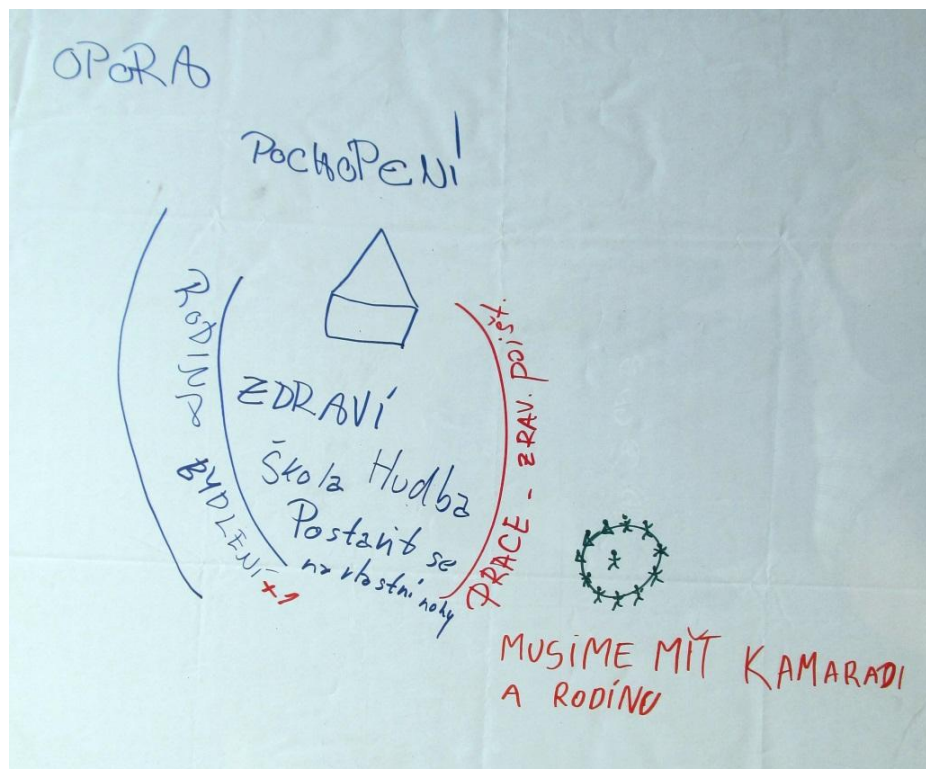 OPORA
POCHOPENÍ
RODINA BYDLENÍ x1
ZDRAVÍ
Škola Hudba
Postavit se
na vlastní nohy
PRACE - ZRAV. pojišt.
MUSIME MÍT KAMARADI
A RODÍNU